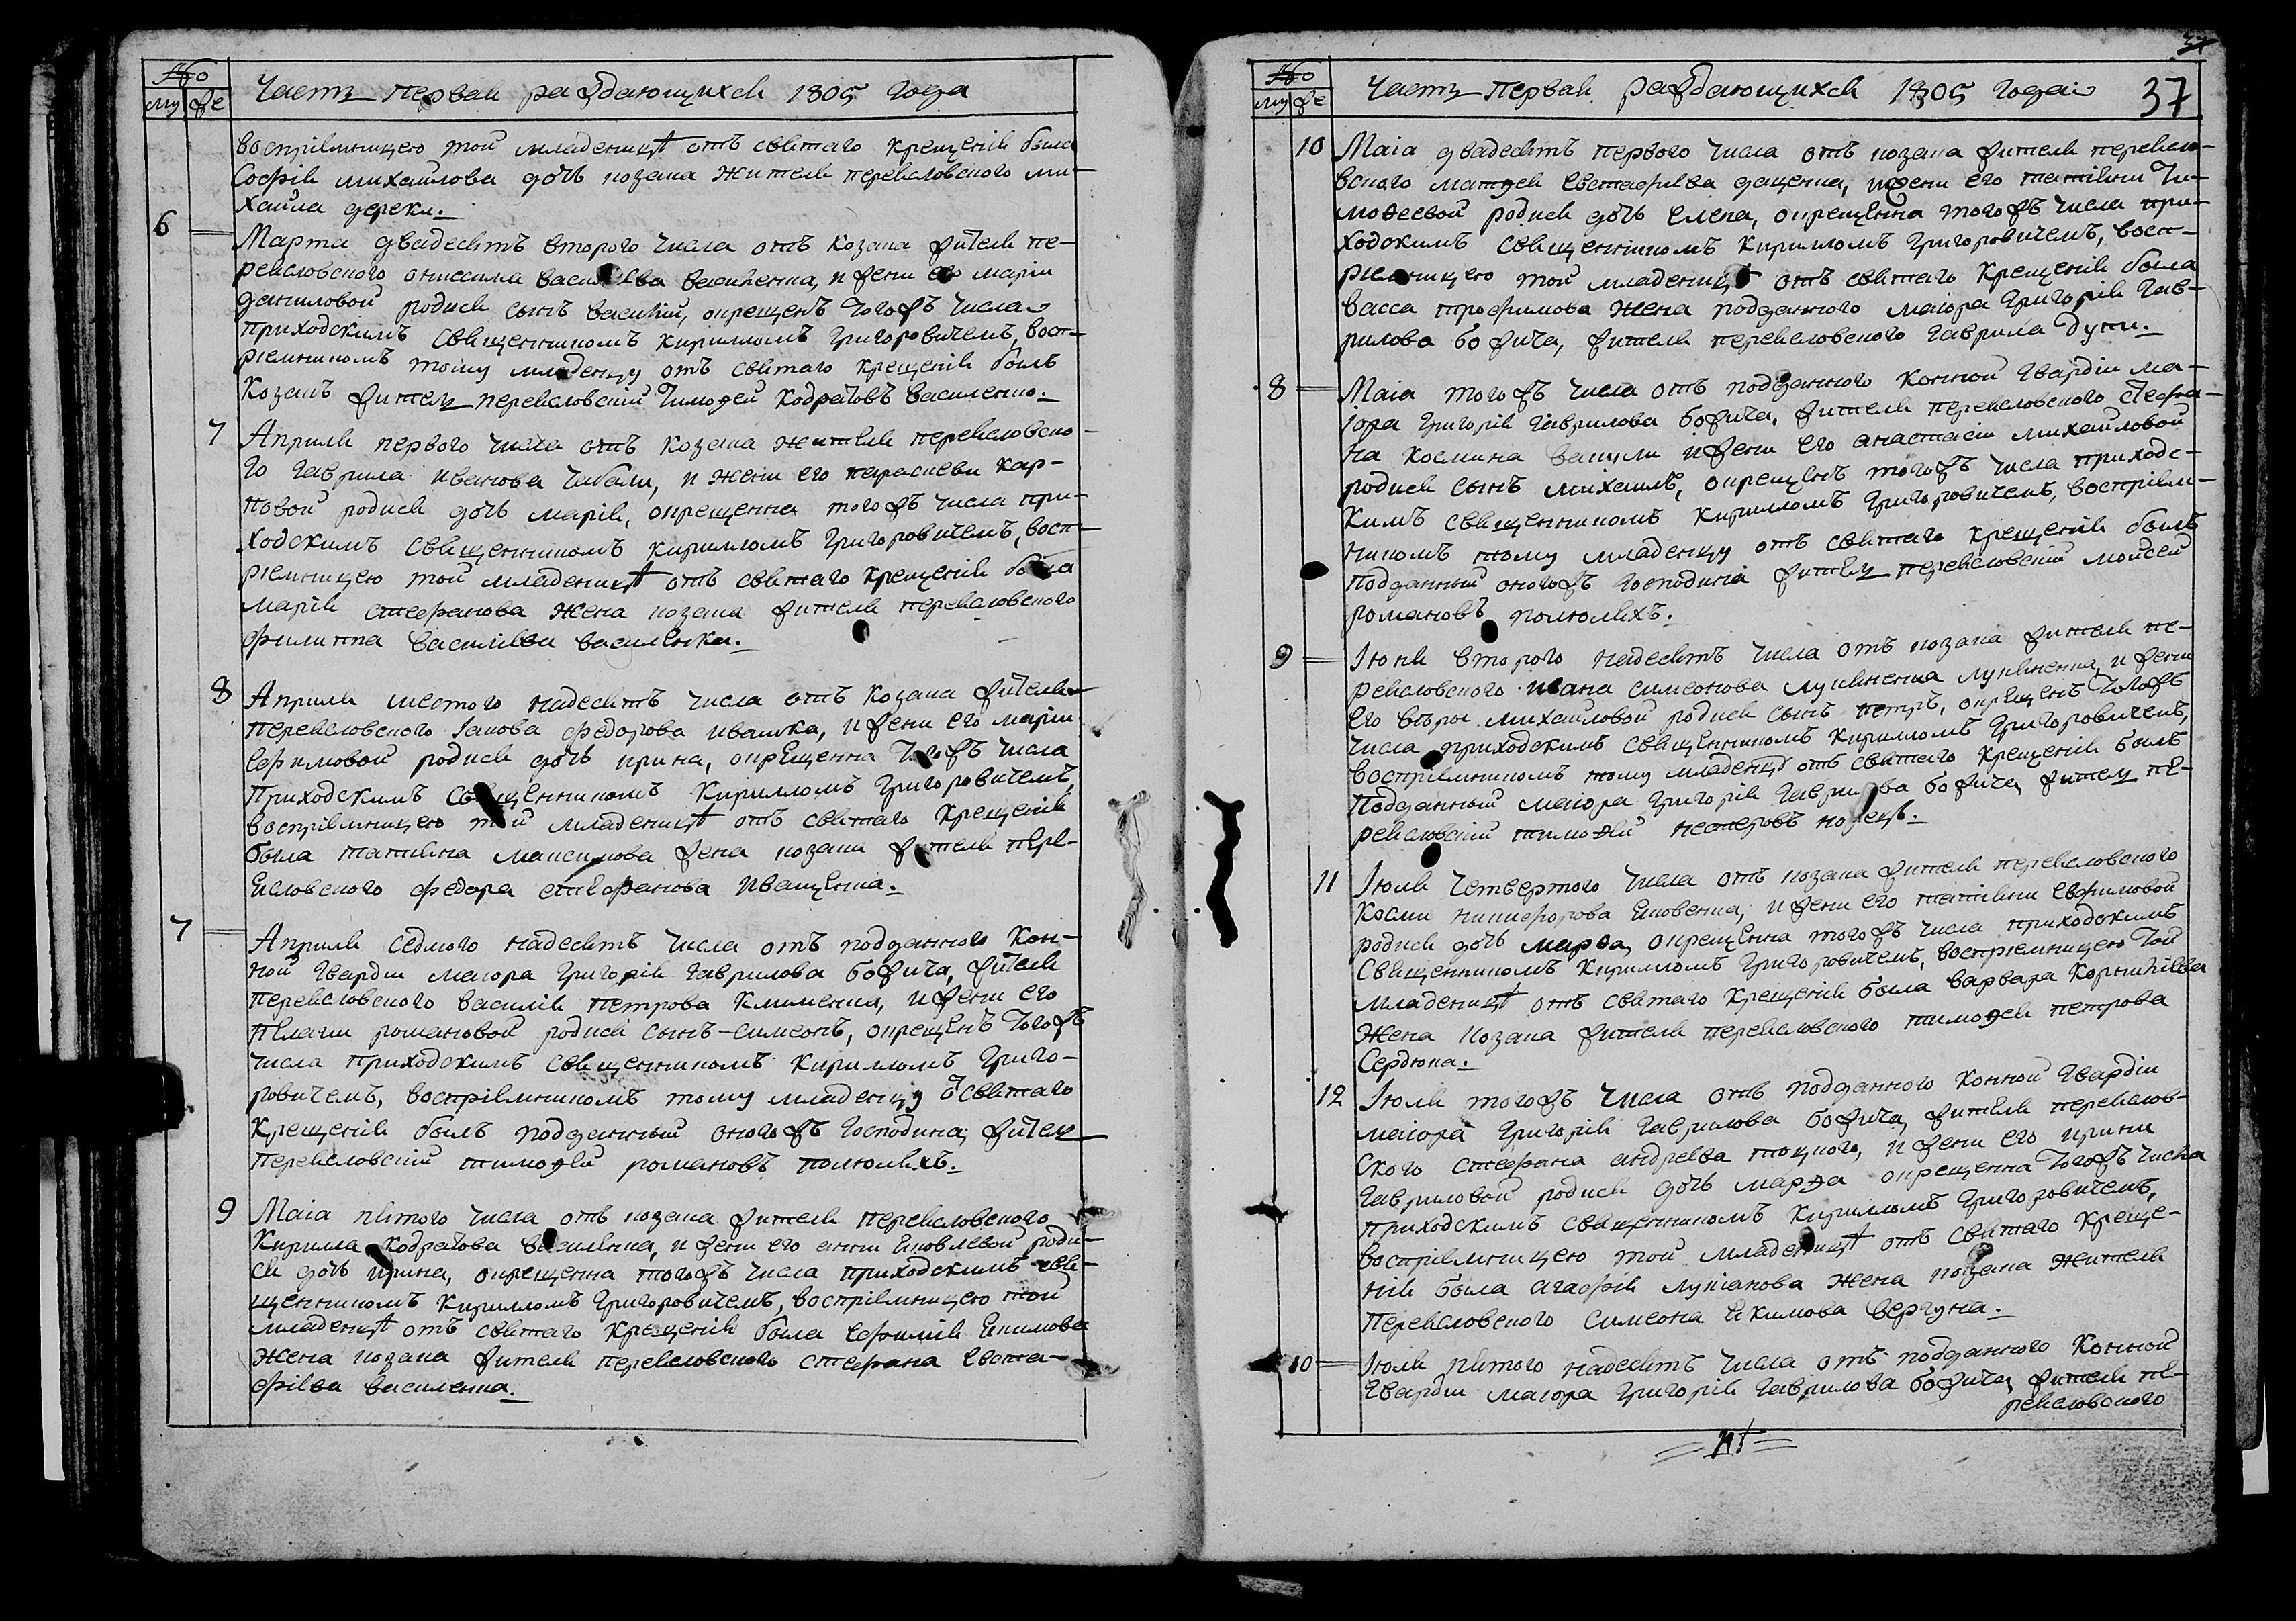 No
му же
Часть первая раждающихся 1805 года
воспріемницею той младеницѣ отъ святаго крещенія была
Софія михайлова дочь козака жителя переяловского ми-
хайла дереки.
6
Марта двадесятъ второго числа отъ козака жителя пе-
реяловского аниссима василіева василенка, и жени его маріи
даниловой родися сынъ василій, окрещенъ тогожъ числа
приходскимъ священникомъ кирилломъ григоровичемъ, восп-
ріемникомъ тому младенцу отъ святаго крещенія былъ
козакъ житель переяловскій тимоѳей кодратовъ василенко.
7
Априля первого числа отъ козака жителя переяловско-
го гаврила иванова чабали, и жени его параскеви кар-
повой родися дочь марія, окрещенна тогожъ числа при-
ходскимъ священникомъ кирилломъ григоровичемъ, восп-
ріемницею той младеницѣ отъ святаго крещенія была
марія стефанова жена козака жителя переяловского
филиппа василіева василенка.
8
Априля шестого надесятъ числа отъ козака жителя
переяловского іакова федорова ивашка, и жени его маріи
Ефимовой родися дочь ирина, окрещенна тогожъ числа
приходскимъ священникомъ кирилломъ григоровичемъ,
воспріемницею той младеницѣ отъ святаго крещенія
была татіяна максимова жена козака жителя пере-
яловского федора стефанова иващенка.
7
Априля седмого надесятъ числа отъ подданного кон-
ной гвардіи маіора григорія гаврилова божича, жителя
переяловского василія петрова клименка, и жени его
пелагии романовой родися сынъ-симеонъ, окрещенъ тогожъ
числа приходскимъ священникомъ кирилломъ григо-
ровичемъ, воспріемникомъ тому младенцу ѿ святаго
крещенія былъ подданный оногожъ господина, житель
переяловскій тимоѳей романовъ полюляхъ.
9
Маіа пятого числа отъ козака жителя переяловского
Кирилла кодратова василенка, и жени его анни яковлевой роди-
ся дочь ирина, окрещенна тогожъ числа приходскимъ свя-
щенникомъ кирилломъ григоровичемъ, воспріемницею той
младеницѣ отъ святаго крещенія была Ефимія якимова
жена козака жителя переяловского стефана евста-
фіева василенка.
37
No
му же
Часть первая раждающихся 1805 года
37
10
Маіа двадесятъ первого числа отъ козака жителя переяло-
вского матѳея евстафіева дащенка, и жени его татіяни ти-
моѳеевой родися дочь елена, окрещенна тогожъ числа при-
ходскимъ священникомъ кирилломъ григоровичемъ, восп-
ріемницею той младеницѣ отъ святаго крещенія была
васса трофимова жена подданного маіора григорія гав-
рилова божича, жителя переяловского гаврила дупи.
8
Маіа тогожъ числа отъ подданного конной гвардіи ма-
іора григорія гаврилова божича, жителя переяловского стефа-
на космина вакули и жени его анастасіи михайловой
родися сынъ михаилъ, окрещенъ тогожъ числа приходс-
кимъ священникомъ кирилломъ григоровичемъ, воспріем-
никомъ тому младенцу отъ святаго крещенія былъ
подданный оногожъ господина житель переяловскій мойсей
романовъ полюляхъ.
9
Іюня второго надесятъ числа отъ козака жителя пе-
реяловского ивана симеонова лукяненка, и жени
его вѣры михайловой родися сынъ петръ, окрещенъ тогожъ
числа приходскимъ священникомъ кирилломъ григоровичемъ,
воспріемникомъ тому младенцу отъ святаго крещенія былъ
подданный маіора григорія гаврилова божича, житель пе-
реяловскій тимоѳей нестеровъ
11
Іюля четвертого числа отъ козака жителя переяловского
косми никифорова яковенка, и жени его татіяни евфимовой
родися дочь марѳа, окрещенна тогожъ числа приходскимъ
священникомъ кирилломъ григоровичемъ, воспріемницею той
младеницѣ отъ святаго крещенія была варвара корниліева
жена козака жителя переяловского тимоѳея петрова
Сердюка.
12
Іюля тогожъ числа отъ подданного конной гвардіи
маіора григорія гаврилова божича, жителя переялов-
ского стефана андреева тоцкого, и жени его ирини
гавриловой родися дочь марѳа окрещенна тогожъ числа
приходскимъ священникомъ кирилломъ григоровичемъ,
воспріемницею той младеницѣ отъ святаго креще-
нія была агафія лукіанова жена козака жителя
переяловского симеона якимова вергуна.
10
Іюля пятого надесятъ числа отъ подданного конной
гвардіи маіора григорія гаврилова божича, жителя пе-
реяловского